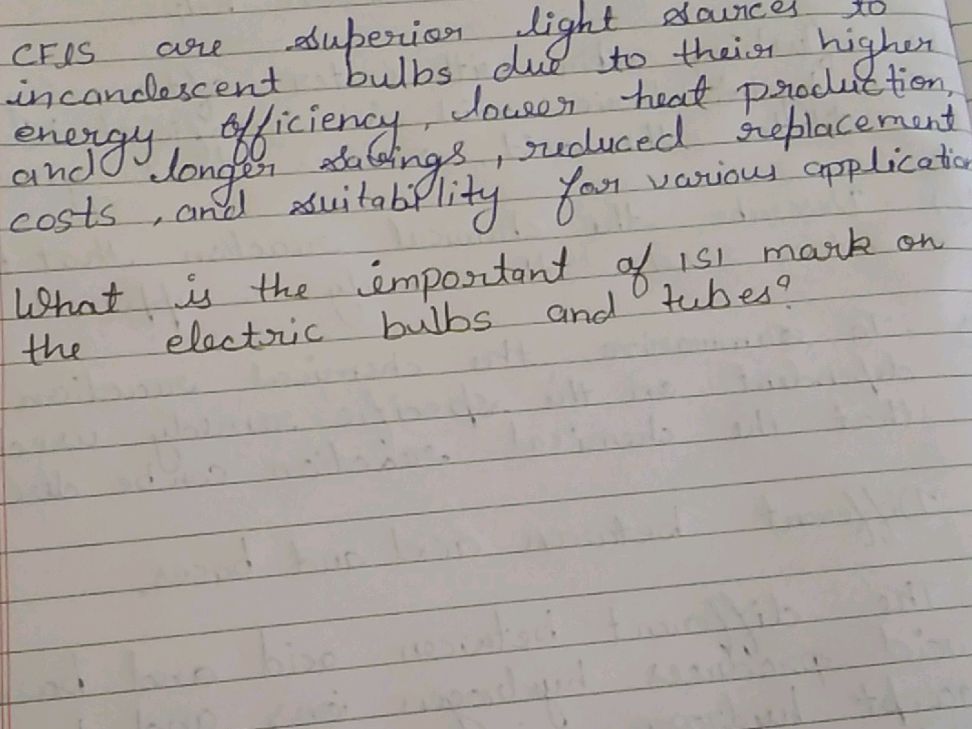 CFLS are superior light sources to
incandescent bulbs due to their higher
energy efficiency, lower heat production,
and longer savings, reduced replacement
costs, and suitability for various applicatio
What is the important of ISI mark on
the electric bulbs and tubes?